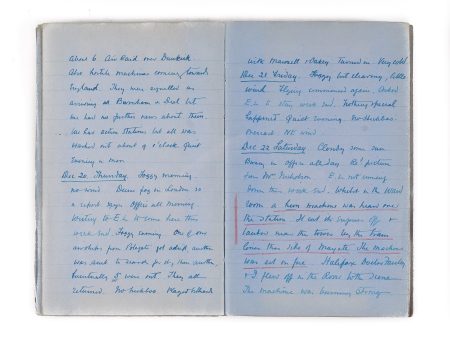 About 6 Air Raid over Dunkirk
Also hostile machines coming toward
England. They were signalled as
arriving at Barnham & Deal but
we had no further news about them
We had action stations but all was
washed out about 9 o'clock. Quiet
Evening in mess
Dec 20. Thursday. Foggy morning
no wind. Dense fog in London so
a report says. Office all morning
Writing to E. to come here this
week end. Foggy evening. One of our
from got adrift another
was sent to search for it, then another
Eventually 5 were out. They all
returned. No
with Maxwell & Oakey. Turned in. Very cold
Dec 21. Friday. Foggy but clearing, little
wind. Flying commenced again. Asked
E. to stay week end. Nothing special
happened. Quiet evening.
NE wind
Dec 22 Saturday. Cloudy some rain
Busy in office all day.
for Mr E. is not coming
down this week end. Whilst in the Ward
room a
the Station. It cut the off &
landed near the tower by the Tram
lines this side of Margate. The Machine
was set on fire. Halifax
& I flew off in the to the scene
The machine was burning